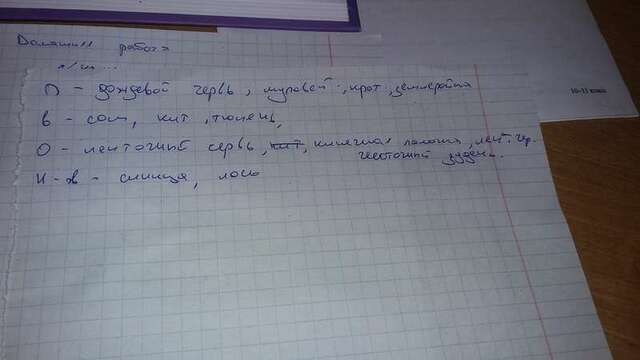 Домашн работа
П - дождевой червь, муровей, крот, землеройка
10-11 класс
В - сом, кит, тюлень,
О - ленточный червь, кит, кишечная палочка, лент. чер.
чесоточный зудень.
Н-В - синица, лось